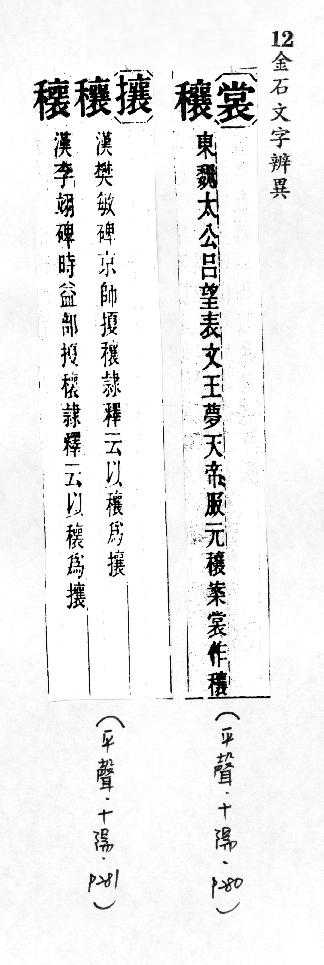 12金石文字辨異
裳 穰
東魏太公呂望表文王夢天帝服元穰案裳作穰
(平聲·十陽·P280)
攘 穰 穰
漢樊敏碑京師擾穰隸釋云以穰為攘
漢李翊碑時益部擾穰隸釋云以穰為攘
(平聲·十陽·P281)